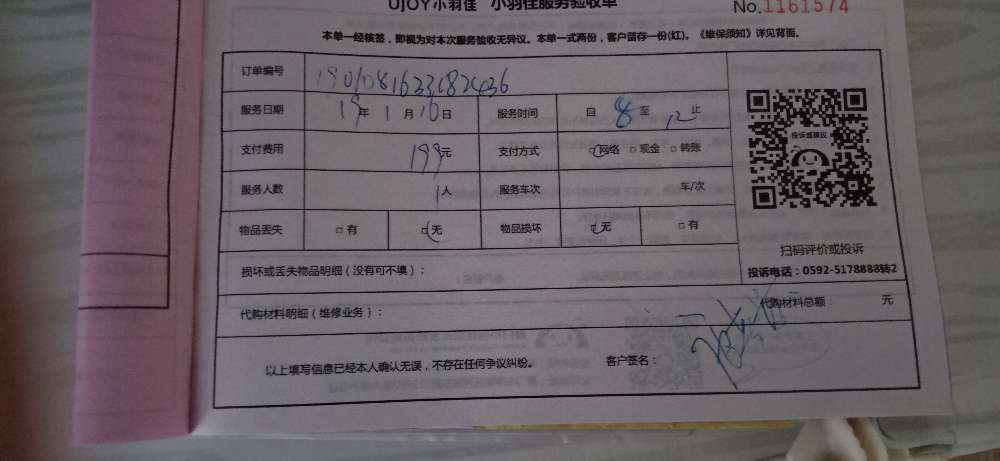 UJOY小羽佳 小羽佳服务验收单 No.1161574
本单一经核签,即视为对本次服务验收无异议。本单一式两份,客户留存一份(红)。《维保须知》详见背面。
订单编号
服务日期 19年1月16日 服务时间 自8至12止
支付费用 199元 支付方式 网络 现金 转账
服务人数 1人 服务车次 车/次
物品丢失 有 无 物品损坏 无 有
投诉或建议
扫码评价或投诉
投诉电话:0592-5178888转2
损坏或丢失物品明细(没有可不填):
代购材料明细(维修业务): 代购材料总额 元
以上填写信息已经本人确认无误,不存在任何争议纠纷。 客户签名: